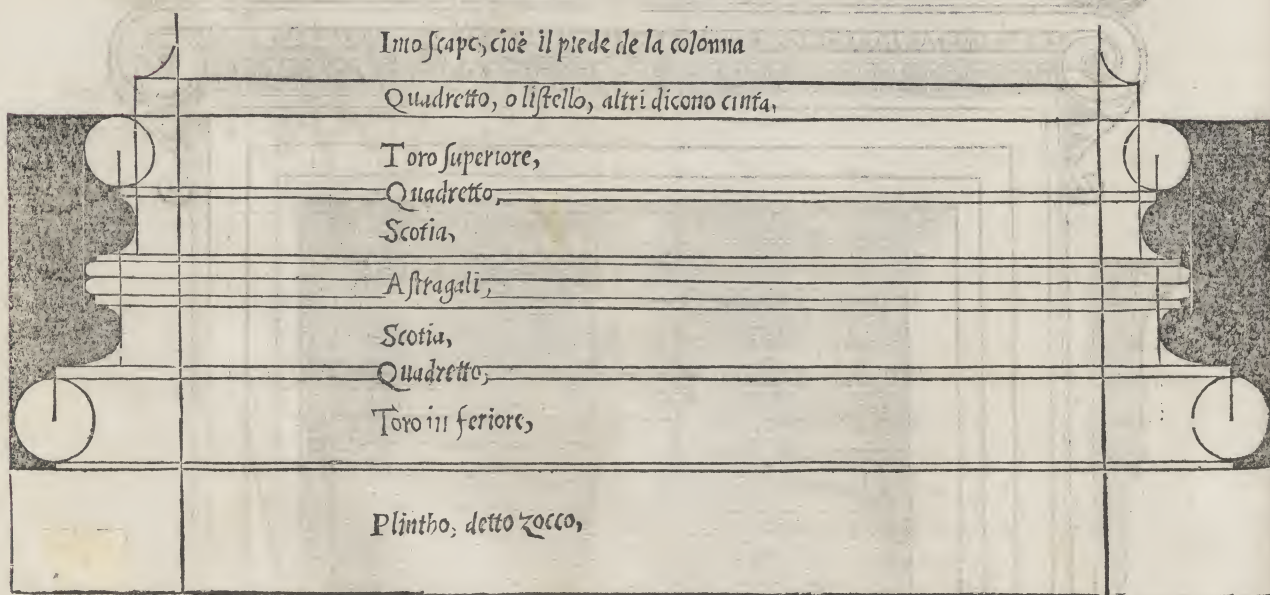 Imo ſcapo, cioè il piede de la colonna
Quadretto, o liſtello, altri dicono cinta,
Toro ſuperiore,
Quadretto,
Scotia,
Aſtragali,
Scotia,
Quadretto,
Toro in feriore,
Plintho, detto zocco,